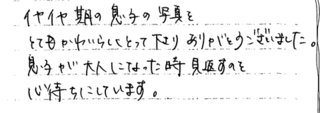 イヤイヤ期の息子の写真を
とてもかわいらしくとって下さり ありがとうございました。
息子が大人になった時見返すのを
心待ちにしています。